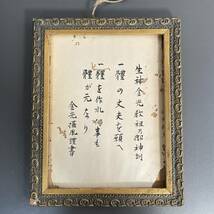 生神金光教祖乃御神訓
一 體の丈夫を願へ
一 體を作れ何事も
體が元なり
金光攝胤謹書